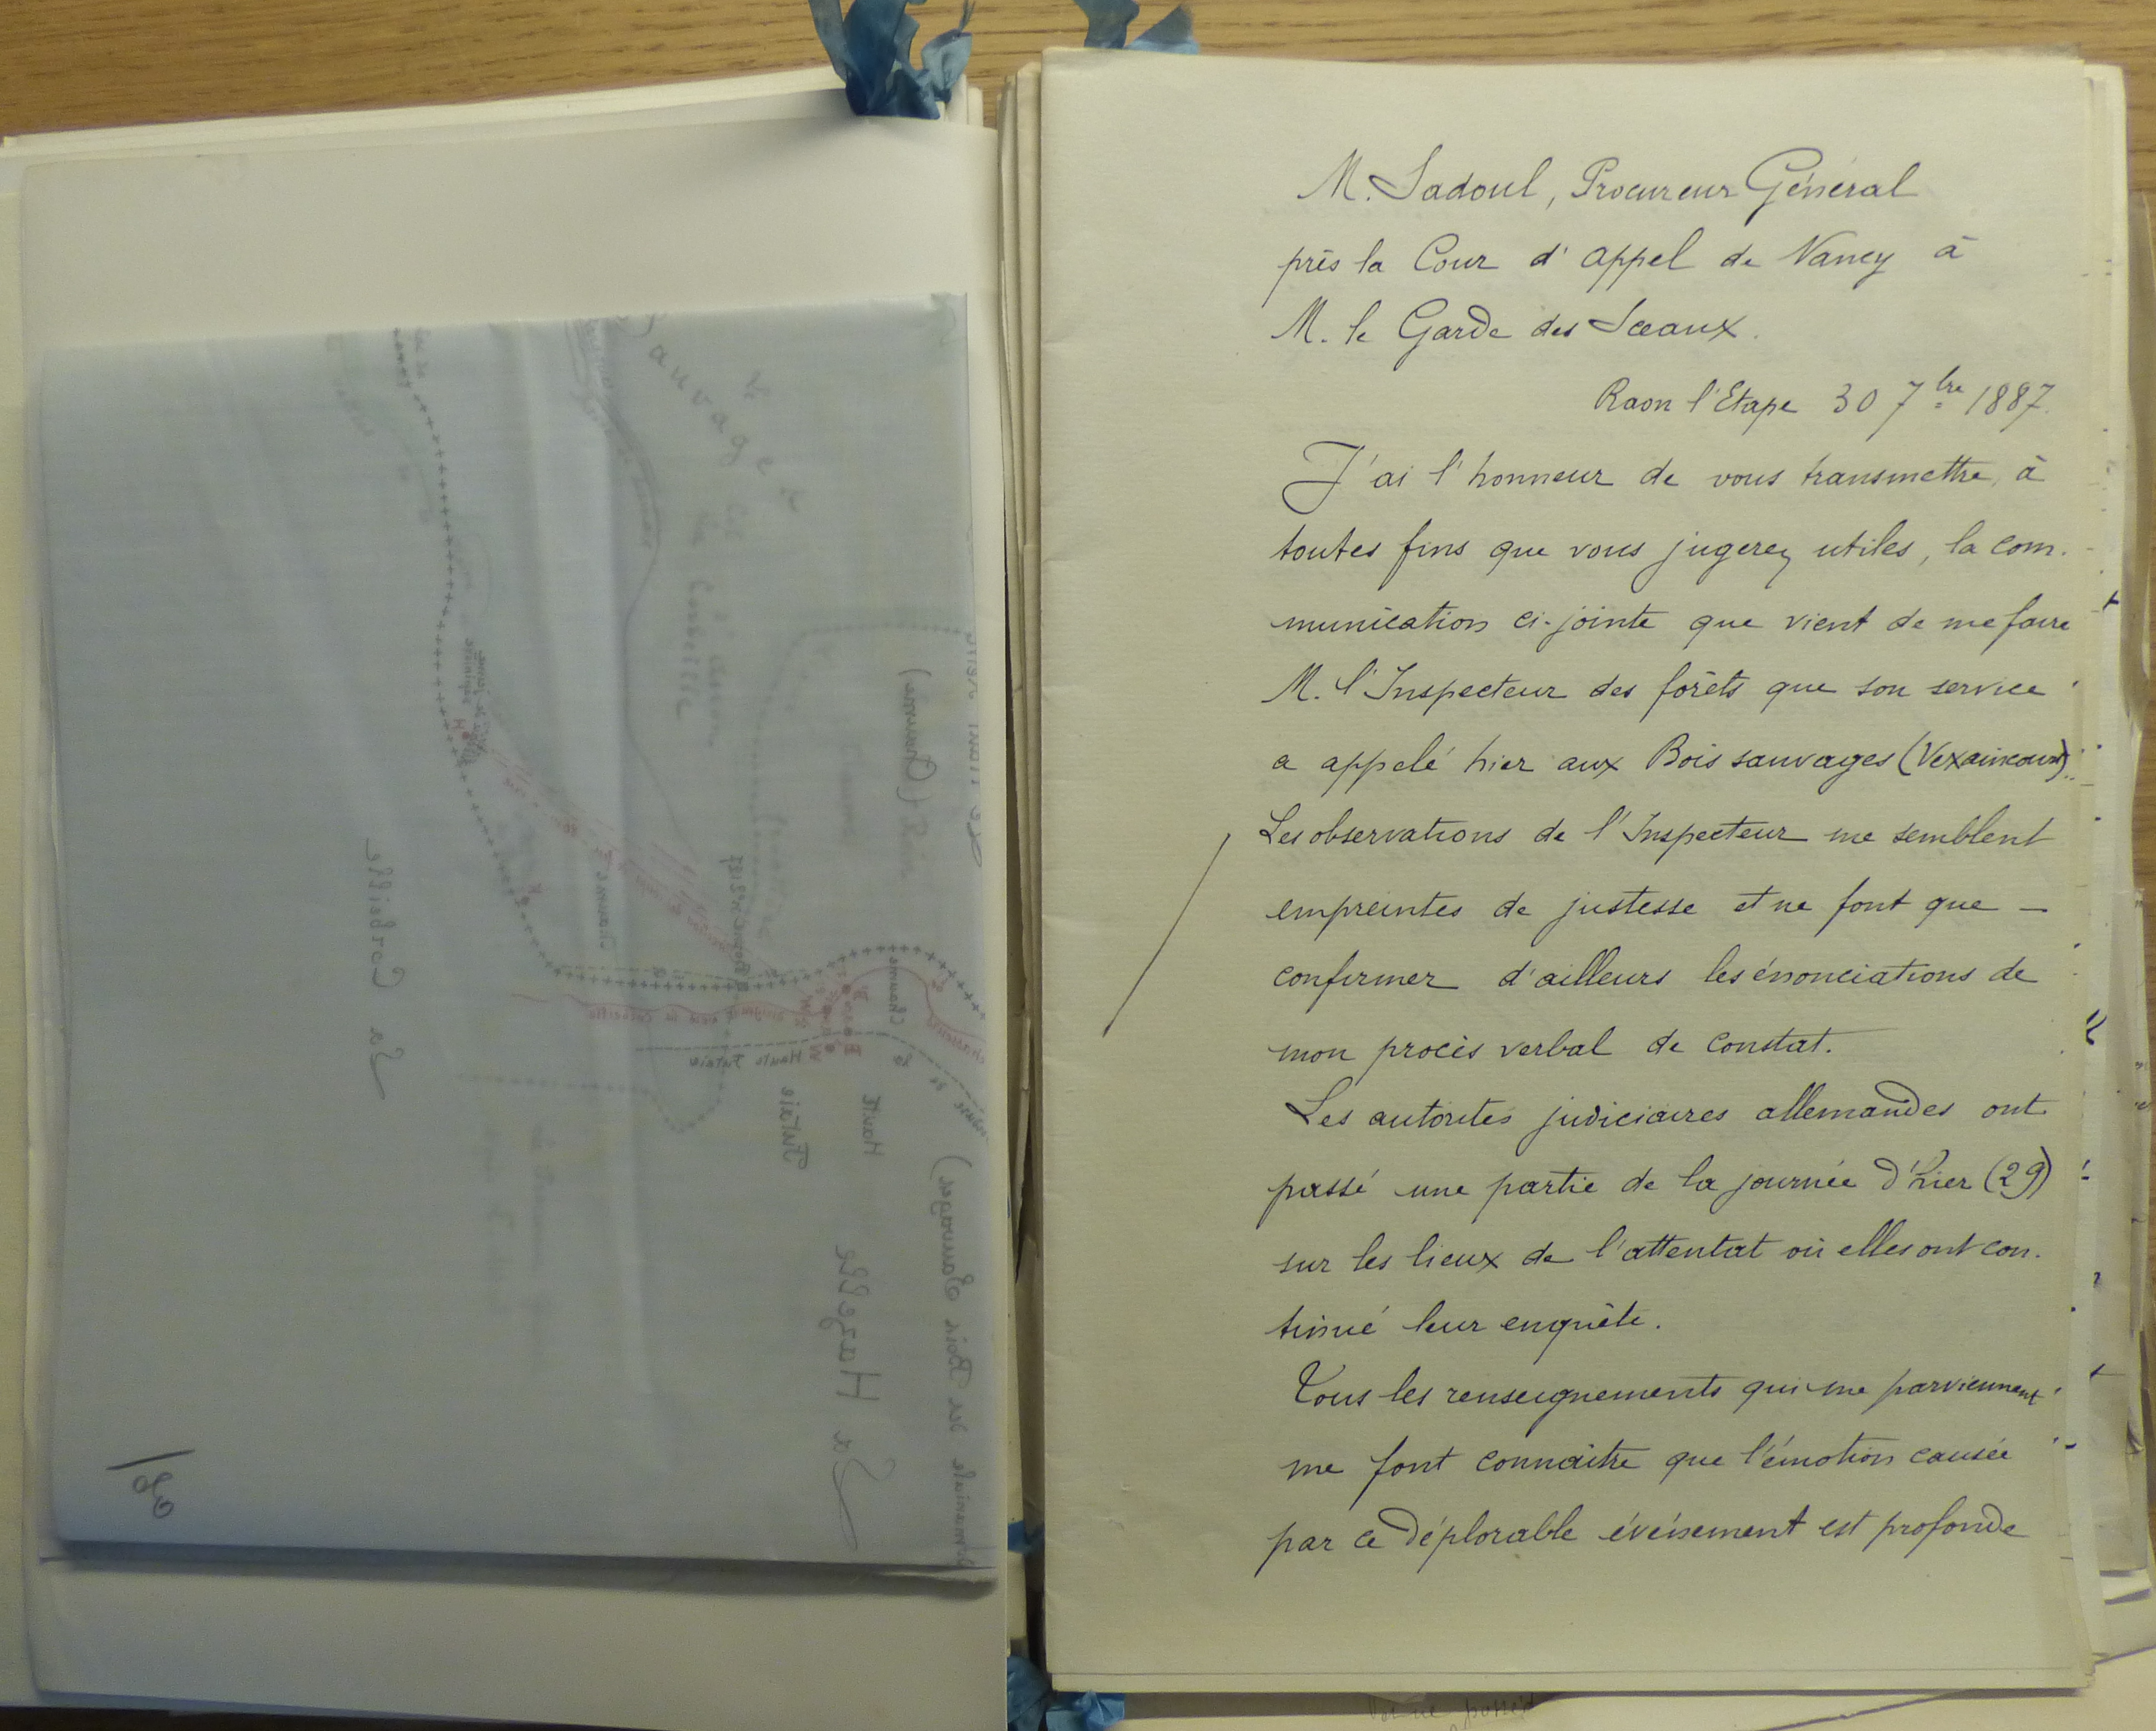 M. Sadoul, Procureur Général
près la Cour d'appel de Nancy à
M. le Garde des Sceaux.
Raon l'Etape 30 7bre 1887.
J'ai l'honneur de vous transmettre, à
toutes fins que vous jugerez utiles, la com-
munication ci-jointe que vient de me faire
M. l'Inspecteur des forêts que son service
a appelé hier aux Bois sauvages (Vexaincourt).
Les observations de l'Inspecteur me semblent
empreintes de justesse et ne font que —
confirmer d'ailleurs les énonciations de
mon procès verbal de constat.
Les autorités judiciaires allemandes ont
passé une partie de la journée d'hier (29)
sur les lieux de l'attentat où elles ont con-
tinué leur enquête.
Tous les renseignements qui me parviennent
me font connaître que l'émotion causée
par ce déplorable événement est profonde
Sauvage
la Corbeille
(Domine)
Chaume
Chaume
Haute Futaie
Haute
Futaie
La Corbeille
La Hazelle
Domaniale des Bois Sauvages)